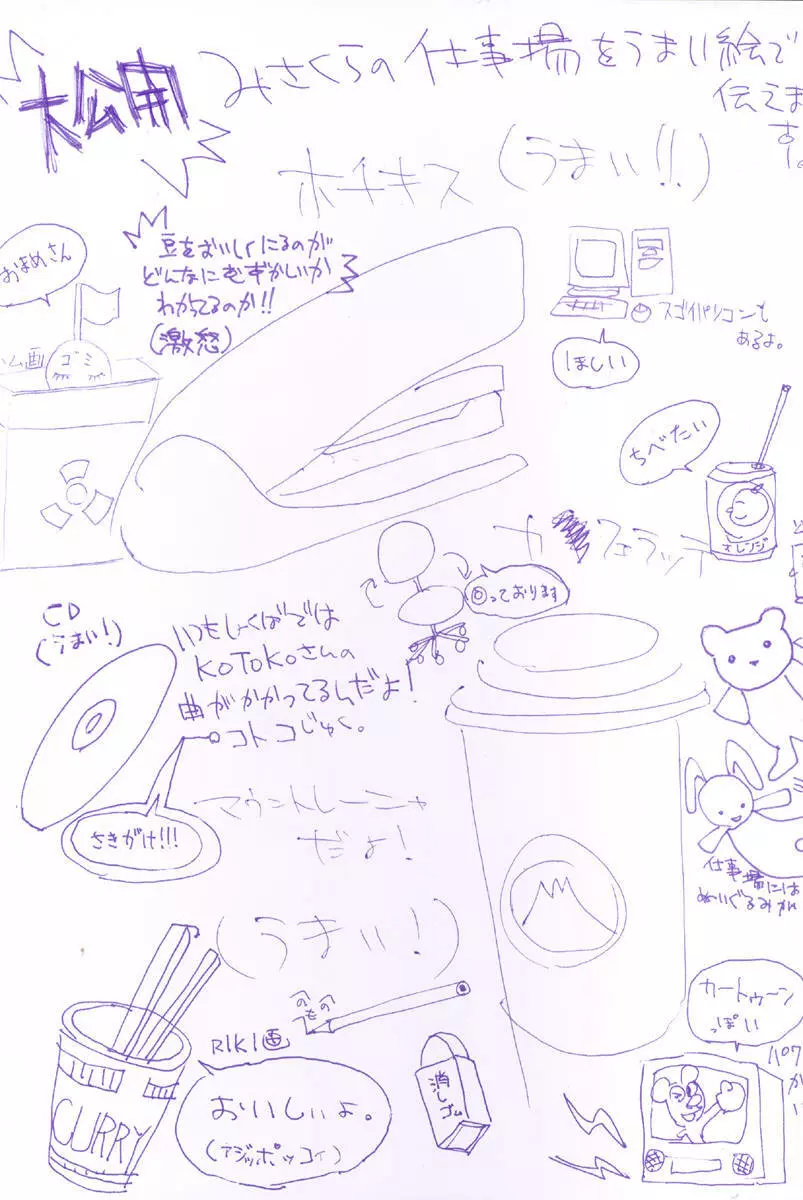 大公開
みさくらの仕事場をうまい絵で
伝えま
す。
ホチキス (うまい!!)
おまめさん
豆をおいしくにるのが
どんなにむずかしいか
わかってるのか!!
(激怒)
ゴミ
スゴイパソコンも
あるよ。
ほしい
ちべたい
オレンジ
カフェラッテ
◎っております
CD
(うまい!)
いつもしょくばでは
KOTOKOさんの
曲がかかってるんだよ!
コトコじゅく。
さきがけ!!!
マウントレーニャ
だよ!
(うまい!)
仕事場には
ぬいぐるみが
RIKI画
おいしいよ。
CURRY
消しゴム
カートゥーン
っぽい